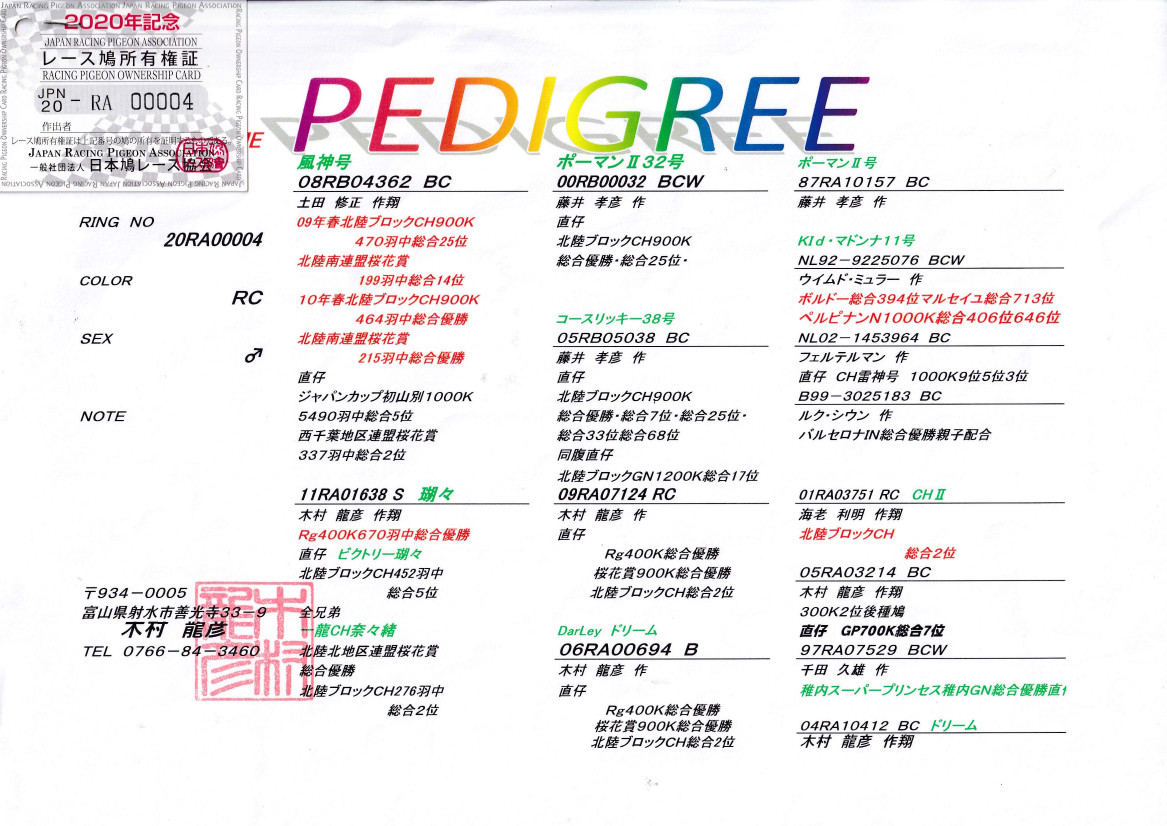 2020年記念
JAPAN RACING PIGEON ASSOCIATION
レース鳩所有権証
RACING PIGEON OWNERSHIP CARD
JPN
20 - RA 00004
作出者
レース鳩所有権証は上記番号の鳩の所有を証明するものである。
JAPAN RACING PIGEON ASSOCIATION
一般社団法人 日本鳩レース協会
PEDIGREE
RING NO
20RA00004
COLOR
RC
SEX
♂
NOTE
〒934-0005
富山県射水市善光寺33-9
木村 龍彦
TEL 0766-84-3460
木村龍彦
風神号
08RB04362 BC
土田 修正 作翔
09年春北陸ブロックCH900K
470羽中総合25位
北陸南連盟桜花賞
199羽中総合14位
10年春北陸ブロックCH900K
464羽中総合優勝
北陸南連盟桜花賞
215羽中総合優勝
直仔
ジャパンカップ初山別1000K
5490羽中総合5位
西千葉地区連盟桜花賞
337羽中総合2位
11RA01638 S 瑚々
木村 龍彦 作翔
Rg400K670羽中総合優勝
直仔 ビクトリー瑚々
北陸ブロックCH452羽中
総合5位
全兄弟
一龍CH奈々緒
北陸北地区連盟桜花賞
総合優勝
北陸ブロックCH276羽中
総合2位
ポーマンⅡ32号
00RB00032 BCW
藤井 孝彦 作
直仔
北陸ブロックCH900K
総合優勝・総合25位・
コースリッキー38号
05RB05038 BC
藤井 孝彦 作
直仔
北陸ブロックCH900K
総合優勝・総合7位・総合25位・
総合33位総合68位
同腹直仔
北陸ブロックGN1200K総合17位
09RA07124 RC
木村 龍彦 作
直仔
Rg400K総合優勝
桜花賞900K総合優勝
北陸ブロックCH総合2位
DarLey ドリーム
06RA00694 B
木村 龍彦 作
直仔
Rg400K総合優勝
桜花賞900K総合優勝
北陸ブロックCH総合2位
ポーマンⅡ号
87RA10157 BC
藤井 孝彦 作
KId・マドンナ11号
NL92-9225076 BCW
ウイムド・ミュラー 作
ボルドー総合394位マルセイユ総合713位
ペルピナンN1000K総合406位646位
NL02-1453964 BC
フェルテルマン 作
直仔 CH雷神号 1000K9位5位3位
B99-3025183 BC
ルク・シウン 作
バルセロナIN総合優勝親子配合
01RA03751 RC CHⅡ
海老 利明 作翔
北陸ブロックCH
総合2位
05RA03214 BC
木村 龍彦 作翔
300K2位後種鳩
直仔 GP700K総合7位
97RA07529 BCW
千田 久雄 作
稚内スーパープリンセス稚内GN総合優勝直仔
04RA10412 BC ドリーム
木村 龍彦 作翔